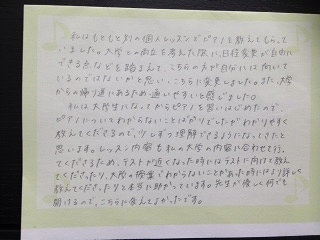 私はもともと別の個人レッスンでピアノを教えてもらって
いました。大学との両立を考えた際に、日程変更が自由に
できる点などを踏まえて、こちらの方が自分には向いて
いるのではないかと思い、こちらに変更しました。また、大学
からの帰り道にあるため通いやすいと感じました。
私は大学生になってからピアノを習いはじめたので、
ピアノについてわからないことばかりでしたがわかりやすく
教えてくださるので、少しずつ理解できるようになってきたと
思います。レッスン内容も私の大学の内容に合わせて行っ
てくださるため、テストが近くなった時にはテストに向けて教え
てくださったり、大学の授業でわからないことがあった時にはより詳しく
教えてくださったりと本当に助かっています。先生が優しく何でも
聞けるので、こちらに変えてよかったです。